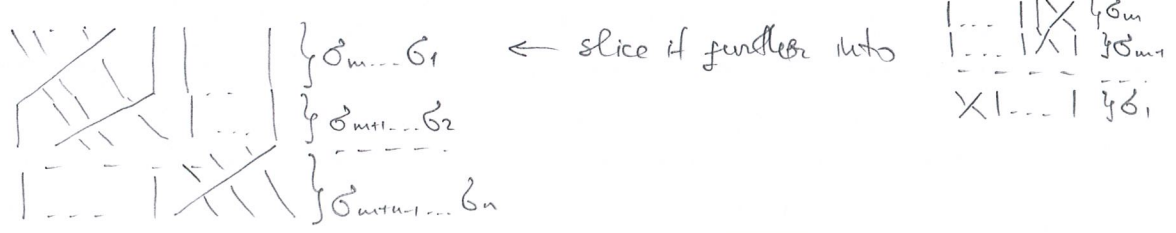 } σₘ...σ₁ ← slice it further into
} σₘ₊₁...σ₂
} σₘ₊ₙ₋₁...σₙ
} σₘ
} σₘ₋₁
} σ₁